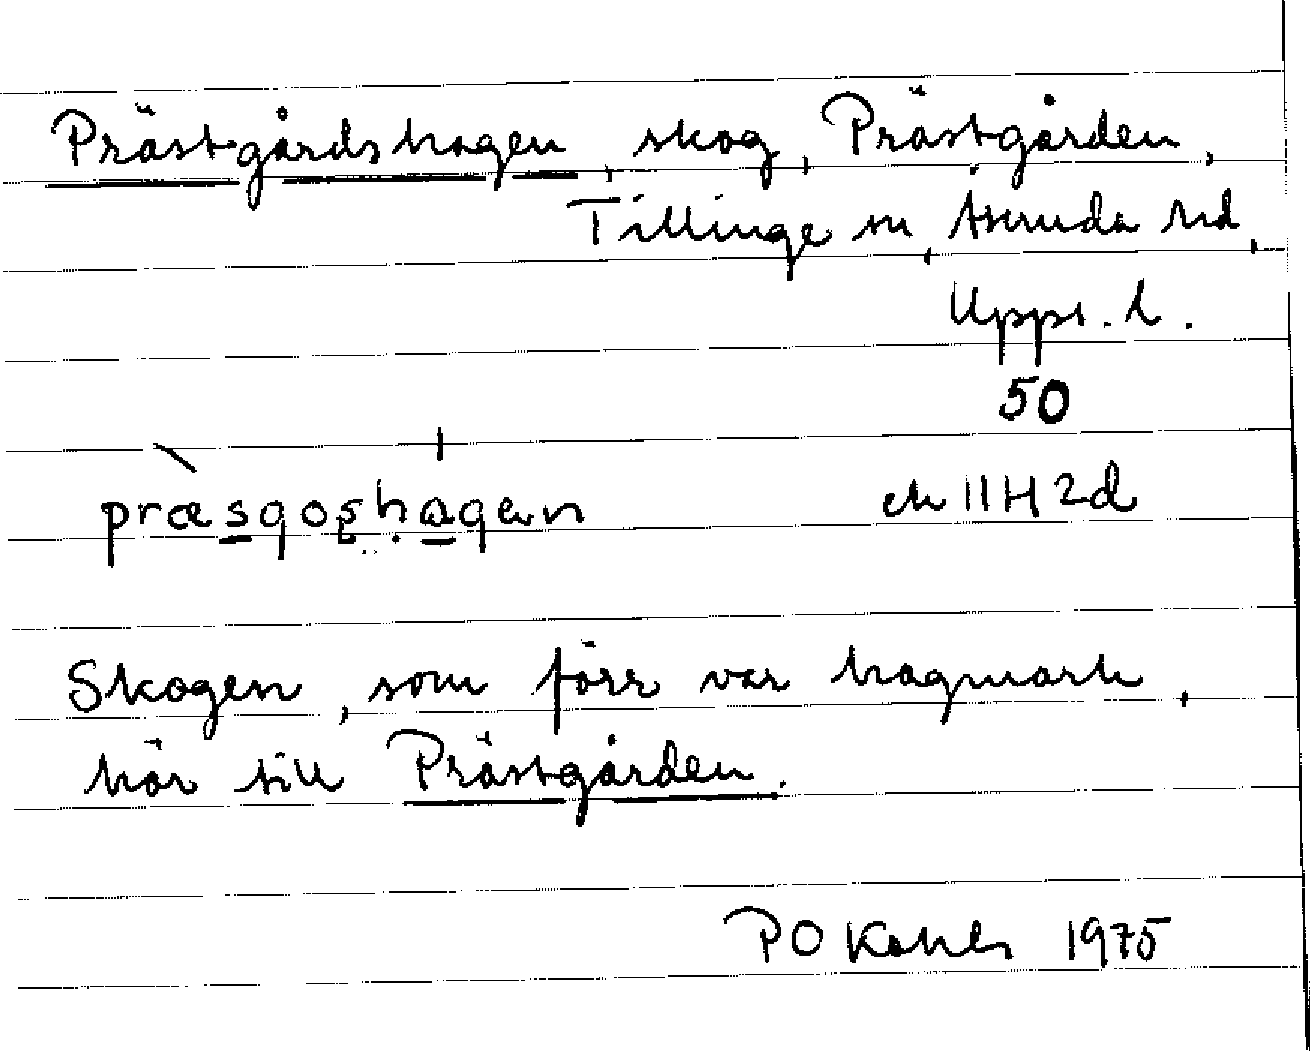 Prästgårdshagen, skog, Prästgården,
Tillinge sn, Åsunda hd,
Upps. l.
50
præsgoshagen ek 11H 2d
Skogen, som förr var hagmark,
hör till Prästgården.
P O 1975